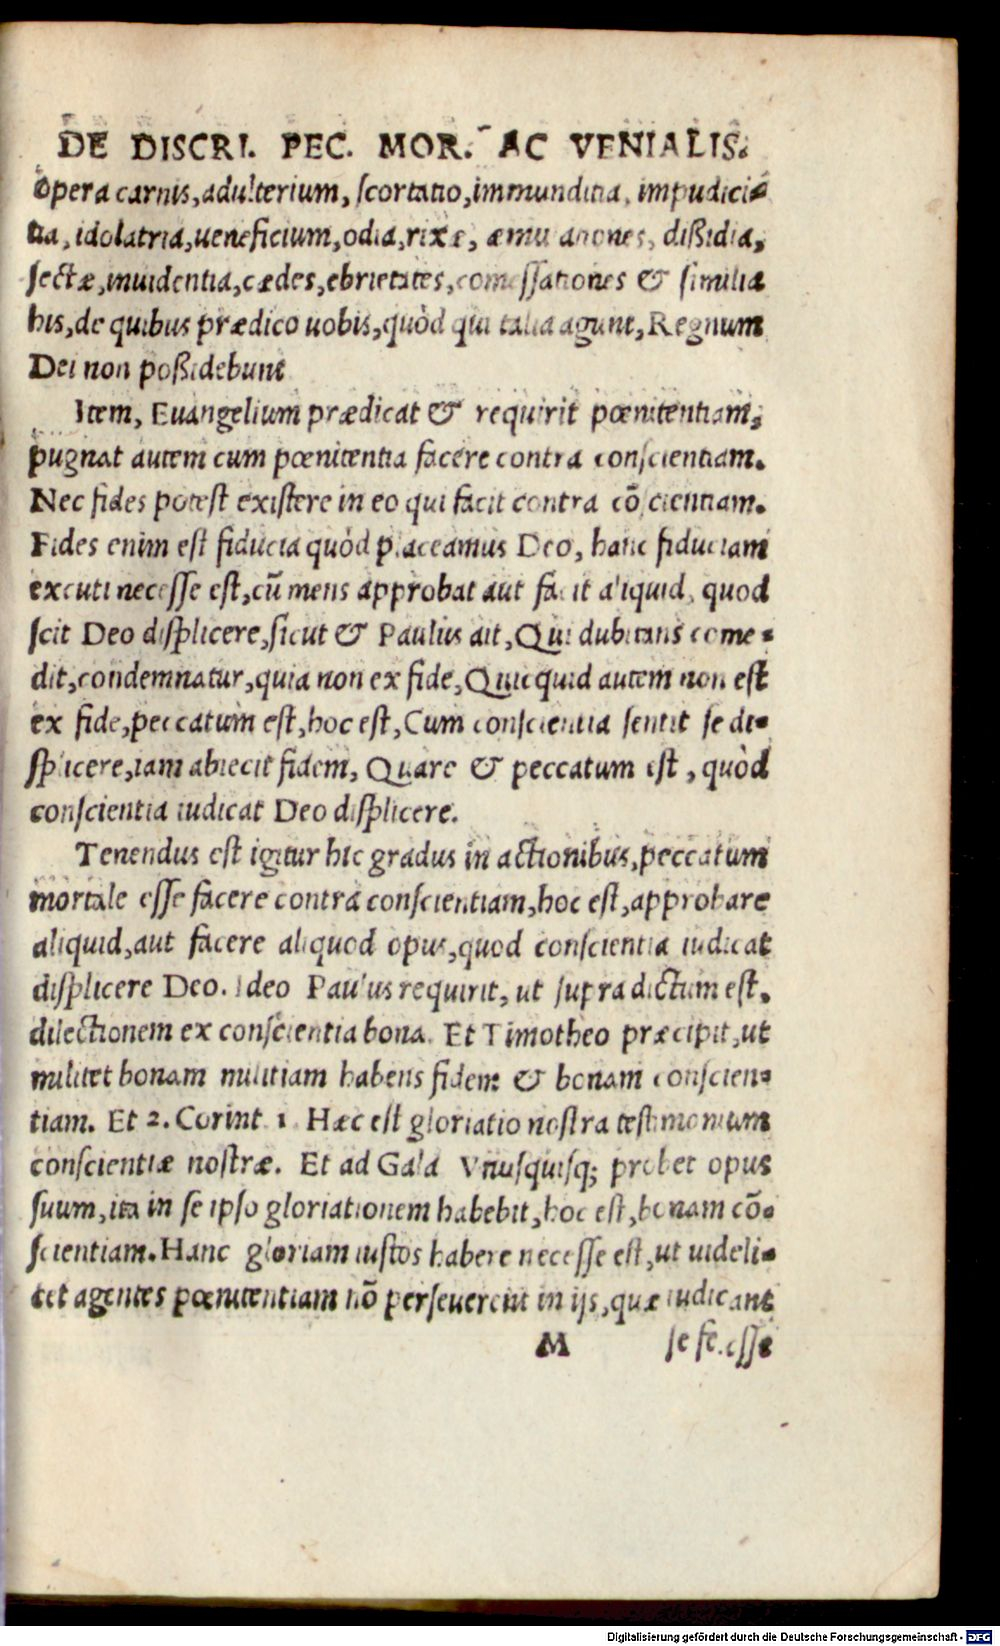 DE DISCRI. PEC. MOR. AC VENIALIS.
opera carnis,adulterium, scortatio,immunditia, impudici-
tia, idolatria,ueneficium,odia,rixæ, æmulationes, dißidia,
sectæ,inuidentia,cædes,ebrietates,comessationes & similia
his,de quibus prædico uobis,quòd qui talia agunt,Regnum
Dei non poßidebunt
Item, Euangelium prædicat & requirit pœnitentiam,
pugnat autem cum pœnitentia facere contra conscientiam.
Nec fides potest existere in eo qui facit contra cõscientiam.
Fides enim est fiducia quòd placeamus Deo, hanc fiduciam
excuti necesse est,cũ mens approbat aut facit aliquid, quod
scit Deo displicere,sicut & Paulus ait,Qui dubitans come-
dit,condemnatur,quia non ex fide,Quicquid autem non est
ex fide,peccatum est,hoc est,Cum conscientia sentit se di-
splicere,iam abiecit fidem, Quare & peccatum est, quòd
conscientia iudicat Deo displicere.
Tenendus est igitur hic gradus in actionibus,peccatum
mortale esse facere contra conscientiam,hoc est,approbare
aliquid,aut facere aliquod opus,quod conscientia iudicat
displicere Deo. Ideo Paulus requirit, ut supra dictum est,
dilectionem ex conscientia bona. Et Timotheo præcipit,ut
militet bonam militiam habens fidem & bonam conscien-
tiam. Et 2. Corint. 1 Hæc est gloriatio nostra testimonium
conscientiæ nostræ. Et ad Gala Vnusquisq; probet opus
suum,ita in se ipso gloriationem habebit,hoc est,bonam cõ-
scientiam.Hanc gloriam iustos habere necesse est,ut uideli-
cet agentes pœnitentiam nõ perseuerent in ijs,quæ iudicant
M se se esse
Digitalisierung gefördert durch die Deutsche Forschungsgemeinschaft - DFG